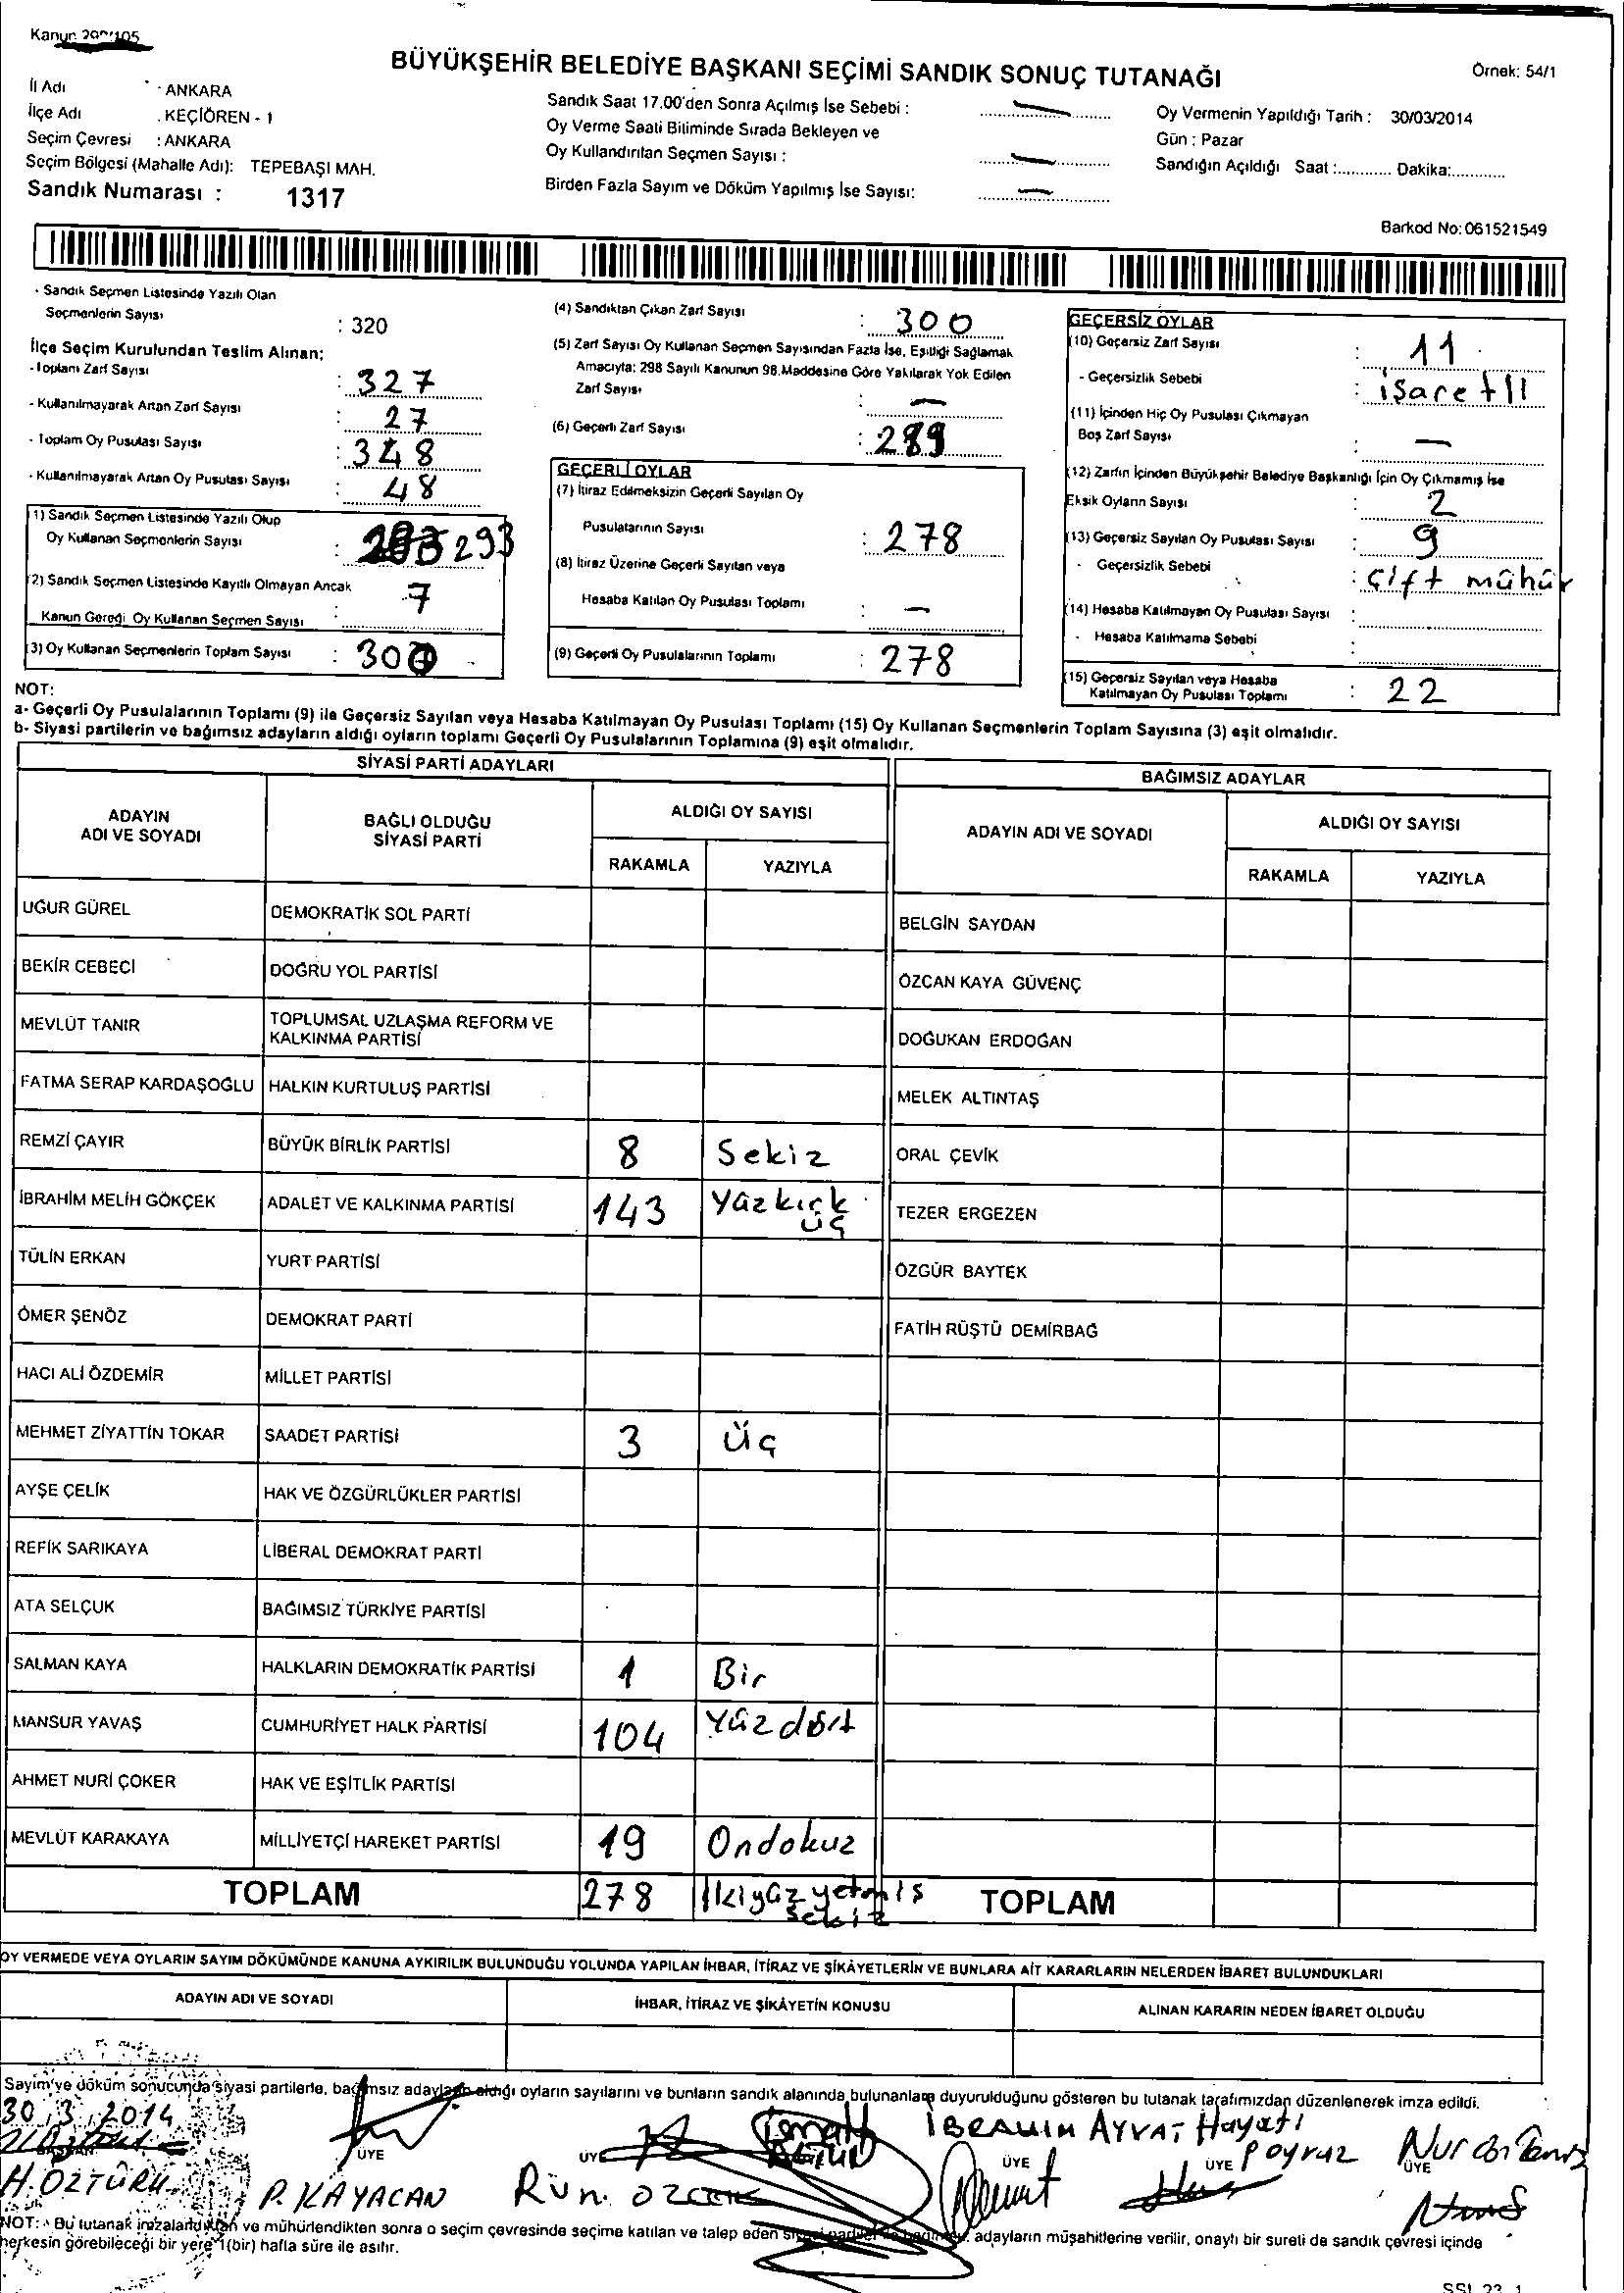 BÜYÜKŞEHİR BELEDİYE BAŞKANI SEÇİMİ SANDIK SONUÇ TUTANAĞI
Örnek: 54/1
İl Adı : ANKARA
İlçe Adı : KEÇİÖREN - 1
Seçim Çevresi : ANKARA
Seçim Bölgesi (Mahalle Adı): TEPEBAŞI MAH.
Sandık Numarası : 1317
Sandık Saat 17.00'den Sonra Açılmış İse Sebebi :
Oy Verme Saati Bitiminde Sırada Bekleyen ve
Oy Kullandırılan Seçmen Sayısı :
Birden Fazla Sayım ve Döküm Yapılmış İse Sayısı:
Oy Vermenin Yapıldığı Tarih : 30/03/2014
Gün : Pazar
Sandığın Açıldığı Saat :............ Dakika:............
Barkod No:061521549
- Sandık Seçmen Listesinde Yazılı Olan
Seçmenlerin Sayısı : 320
İlçe Seçim Kurulundan Teslim Alınan:
- Toplam Zarf Sayısı : 327
- Kullanılmayarak Artan Zarf Sayısı : 27
- Toplam Oy Pusulası Sayısı : 348
- Kullanılmayarak Artan Oy Pusulası Sayısı : 48
(1) Sandık Seçmen Listesinde Yazılı Olup
Oy Kullanan Seçmenlerin Sayısı : 293
(2) Sandık Seçmen Listesinde Kayıtlı Olmayan Ancak
Kanun Gereği Oy Kullanan Seçmen Sayısı : 7
(3) Oy Kullanan Seçmenlerin Toplam Sayısı : 300
(4) Sandıktan Çıkan Zarf Sayısı : 300
(5) Zarf Sayısı Oy Kullanan Seçmen Sayısından Fazla İse, Eşitliği Sağlamak
Amacıyla: 298 Sayılı Kanunun 98.Maddesine Göre Yakılarak Yok Edilen
Zarf Sayısı : —
(6) Geçerli Zarf Sayısı : 289
GEÇERLİ OYLAR
(7) İtiraz Edilmeksizin Geçerli Sayılan Oy
Pusulalarının Sayısı : 278
(8) İtiraz Üzerine Geçerli Sayılan veya
Hesaba Katılan Oy Pusulası Toplamı : —
(9) Geçerli Oy Pusulalarının Toplamı : 278
GEÇERSİZ OYLAR
(10) Geçersiz Zarf Sayısı : 11
- Geçersizlik Sebebi : işaretli
(11) İçinden Hiç Oy Pusulası Çıkmayan
Boş Zarf Sayısı : —
(12) Zarfın İçinden Büyükşehir Belediye Başkanlığı İçin Oy Çıkmamış İse
Eksik Oyların Sayısı : 2
(13) Geçersiz Sayılan Oy Pusulası Sayısı : 9
- Geçersizlik Sebebi : çift mühür
(14) Hesaba Katılmayan Oy Pusulası Sayısı :
- Hesaba Katılmama Sebebi :
(15) Geçersiz Sayılan veya Hesaba
Katılmayan Oy Pusulası Toplamı : 22
NOT:
a- Geçerli Oy Pusulalarının Toplamı (9) ile Geçersiz Sayılan veya Hesaba Katılmayan Oy Pusulası Toplamı (15) Oy Kullanan Seçmenlerin Toplam Sayısına (3) eşit olmalıdır.
b- Siyasi partilerin ve bağımsız adayların aldığı oyların toplamı Geçerli Oy Pusulalarının Toplamına (9) eşit olmalıdır.
SİYASİ PARTİ ADAYLARI
ADAYIN ADI VE SOYADI
BAĞLI OLDUĞU SİYASİ PARTİ
ALDIĞI OY SAYISI
RAKAMLA YAZIYLA
UĞUR GÜREL DEMOKRATİK SOL PARTİ
BEKİR CEBECİ DOĞRU YOL PARTİSİ
MEVLÜT TANIR TOPLUMSAL UZLAŞMA REFORM VE KALKINMA PARTİSİ
FATMA SERAP KARDAŞOĞLU HALKIN KURTULUŞ PARTİSİ
REMZİ ÇAYIR BÜYÜK BİRLİK PARTİSİ 8 Sekiz
İBRAHİM MELİH GÖKÇEK ADALET VE KALKINMA PARTİSİ 143 yüzkırk üç
TÜLİN ERKAN YURT PARTİSİ
ÖMER ŞENÖZ DEMOKRAT PARTİ
HACI ALİ ÖZDEMİR MİLLET PARTİSİ
MEHMET ZİYATTİN TOKAR SAADET PARTİSİ 3 üç
AYŞE ÇELİK HAK VE ÖZGÜRLÜKLER PARTİSİ
REFİK SARIKAYA LİBERAL DEMOKRAT PARTİ
ATA SELÇUK BAĞIMSIZ TÜRKİYE PARTİSİ
SALMAN KAYA HALKLARIN DEMOKRATİK PARTİSİ 1 Bir
MANSUR YAVAŞ CUMHURİYET HALK PARTİSİ 104 yüzdört
AHMET NURİ ÇOKER HAK VE EŞİTLİK PARTİSİ
MEVLÜT KARAKAYA MİLLİYETÇİ HAREKET PARTİSİ 19 Ondokuz
TOPLAM 278 ikiyüzyetmiş sekiz
BAĞIMSIZ ADAYLAR
ADAYIN ADI VE SOYADI
ALDIĞI OY SAYISI
RAKAMLA YAZIYLA
BELGİN SAYDAN
ÖZCAN KAYA GÜVENÇ
DOĞUKAN ERDOĞAN
MELEK ALTINTAŞ
ORAL ÇEVİK
TEZER ERGEZEN
ÖZGÜR BAYTEK
FATİH RÜŞTÜ DEMİRBAĞ
TOPLAM
OY VERMEDE VEYA OYLARIN SAYIM DÖKÜMÜNDE KANUNA AYKIRILIK BULUNDUĞU YOLUNDA YAPILAN İHBAR, İTİRAZ VE ŞİKÂYETLERİN VE BUNLARA AİT KARARLARIN NELERDEN İBARET BULUNDUKLARI
ADAYIN ADI VE SOYADI
İHBAR, İTİRAZ VE ŞİKÂYETİN KONUSU
ALINAN KARARIN NEDEN İBARET OLDUĞU
Sayım ve döküm sonucunda siyasi partilerle, bağımsız adayların aldığı oyların sayılarını ve bunların sandık alanında bulunanlara duyurulduğunu gösteren bu tutanak tarafımızdan düzenlenerek imza edildi.
30.3.2014
İBRAHİM AYVAT Hayati Poyraz
BAŞKAN ÜYE ÜYE ÜYE ÜYE ÜYE
H. ÖZTÜRK P. KAYACAN
NOT: Bu tutanak imzalandıktan ve mühürlendikten sonra o seçim çevresinde seçime katılan ve talep eden siyasi partiler adayların müşahitlerine verilir, onaylı bir sureti de sandık çevresi içinde
herkesin görebileceği bir yere 1(bir) hafta süre ile asılır.